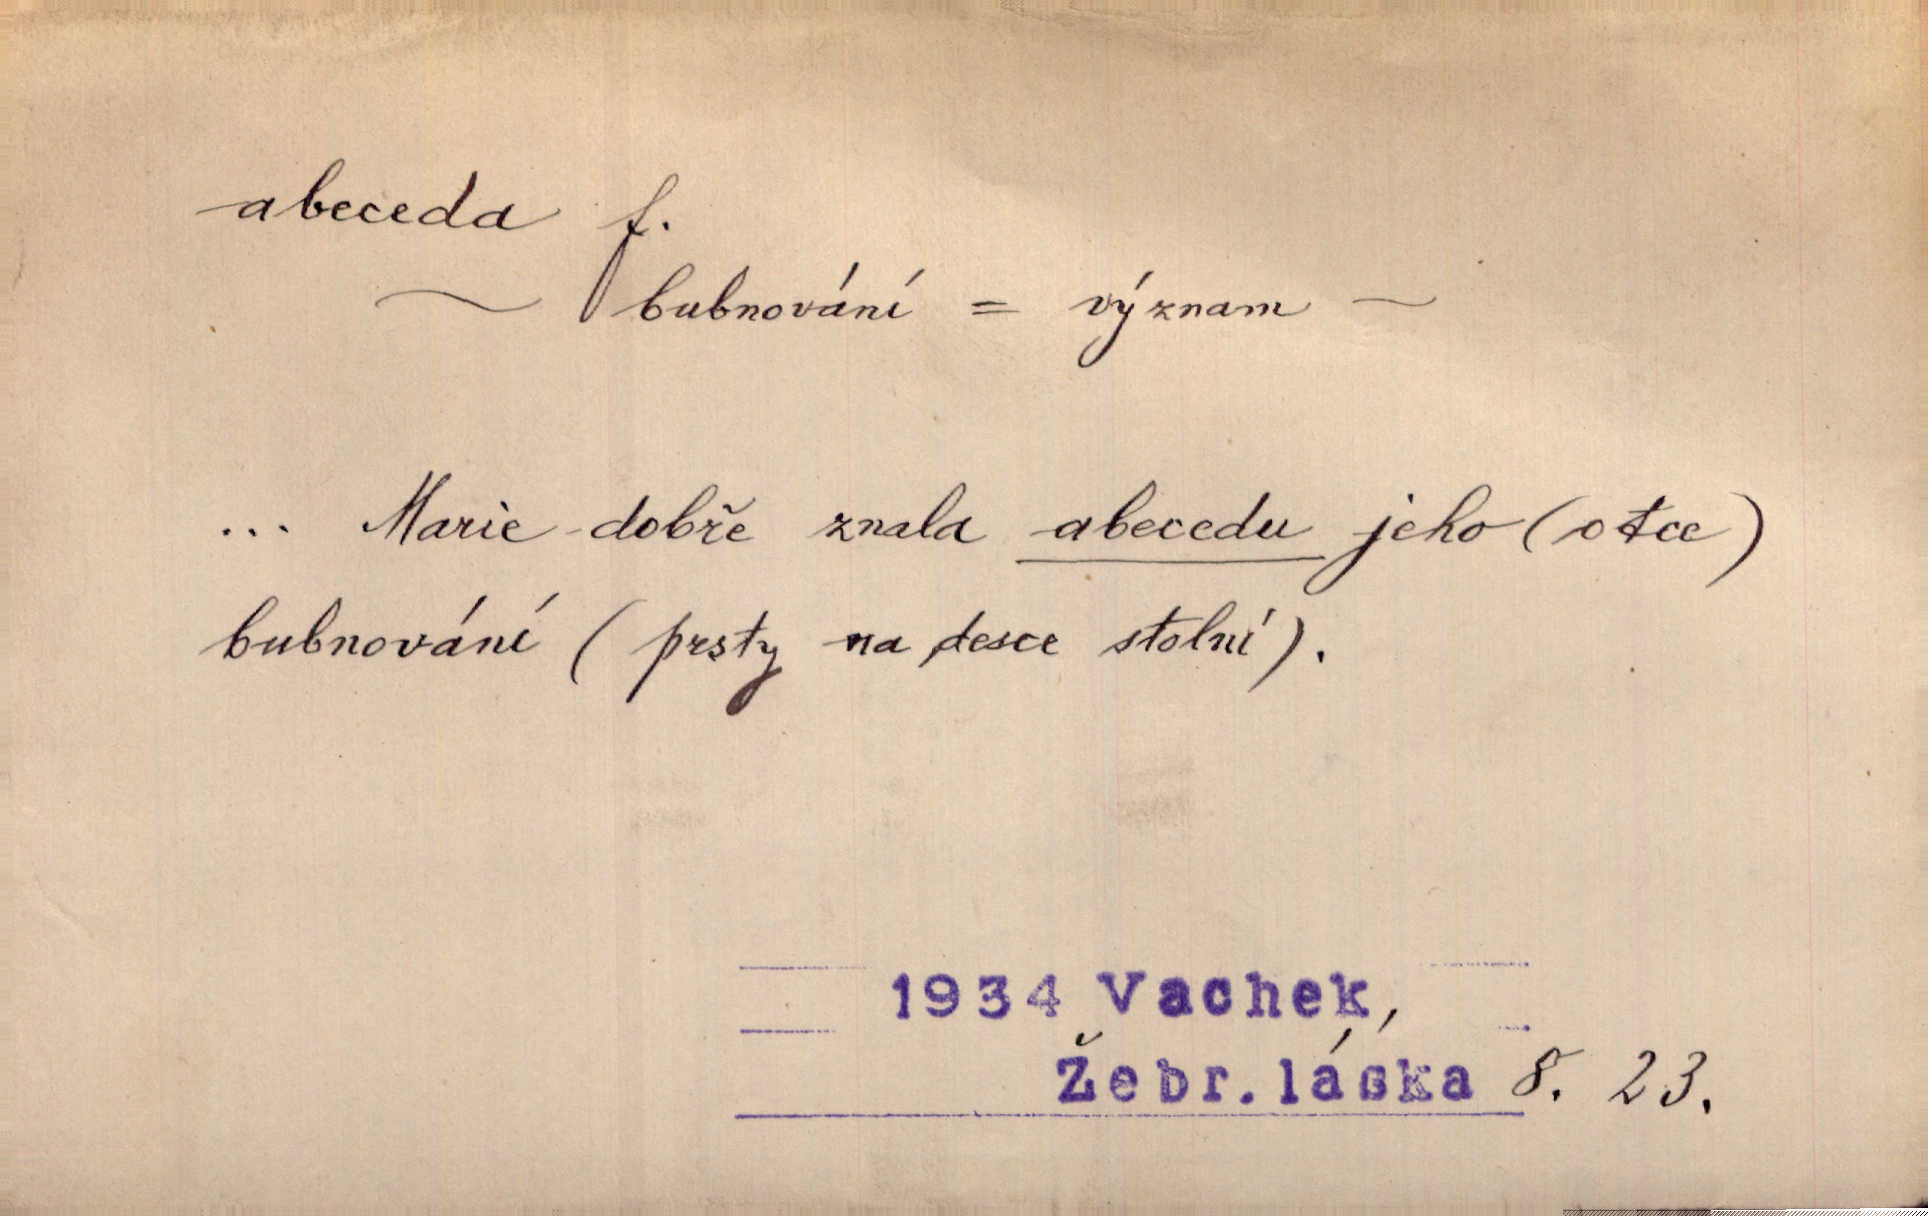 abeceda f.
~ bubnování = význam ~
... Marie dobře znala abecedu jeho (otce)
bubnování (prsty na desce stolní).
1934 Vachek,
Žebr. láska 8. 23.